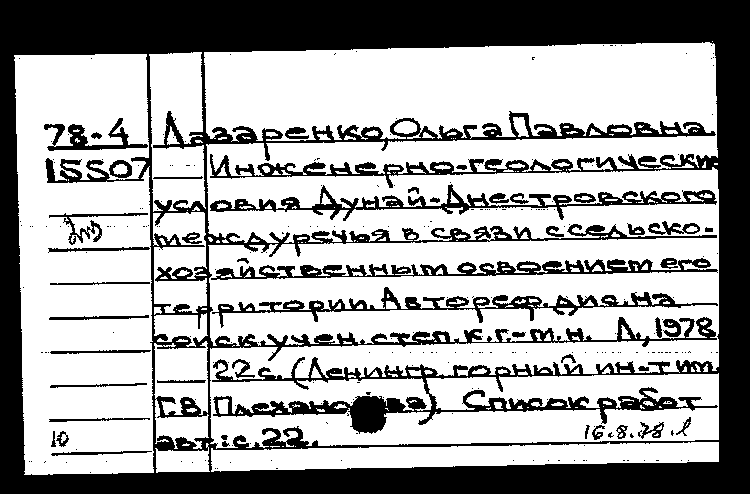 78-4 Лазаренко, Ольга Павловна.
15507 Инженерно-геологические
условия Дунай-Днестровского
междуречья в связи с сельско-
хозяйственным освоением его
территории. Автореф. дис. на
соиск. учен. степ. к.г.-м.н. Л., 1978.
22 с. (Ленингр. горный ин-т им.
Г.В. Плеханова). Список работ
10 авт.: с. 22. 16.8.78